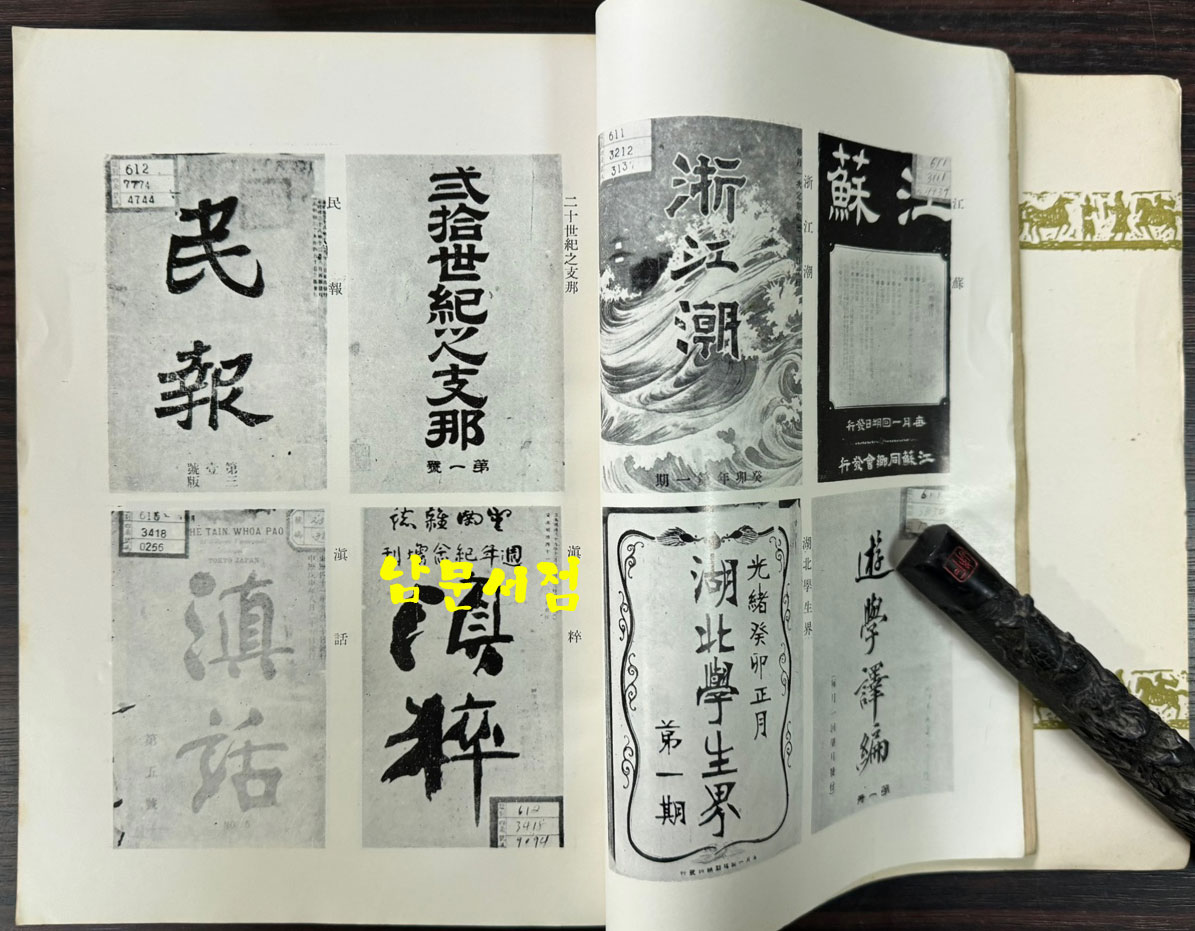 612
7774
4744
民報
第壹號
第三版
民報
貳拾世紀之支那
第一號
二十世紀之支那
3418
0256
THE TAIN WHOA PAO
TOKYO JAPAN
滇話
第五號
NO. 5
滇話
雲南雜誌
週年紀念增刊
滇粹
612
3418
9094
滇粹
남문서점
611
3212
313
浙江潮
癸卯年 一期
浙江潮
江蘇
每月一回朔日發行
江蘇同鄉會發行
江蘇
光緒癸卯正月
湖北學生界
第一期
湖北學生界
遊學譯編
第一冊